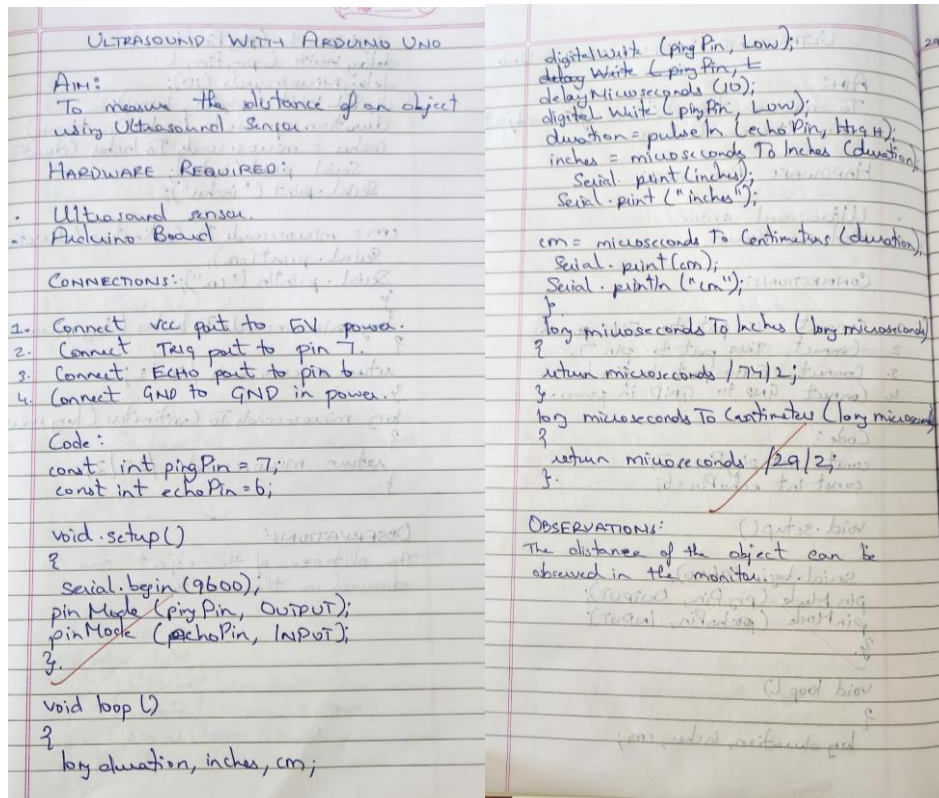 ULTRASOUND WITH ARDUINO UNO
AIM:
To measure the distance of an object
using Ultrasound Sensor.
HARDWARE REQUIRED:
· Ultrasound sensor.
· Arduino Board
CONNECTIONS:
1. Connect Vcc port to 5V power.
2. Connect TRIG port to pin 7.
3. Connect ECHO port to pin 6
4. Connect GND to GND in power.
Code:
const int pingPin = 7;
const int echoPin = 6;
void setup()
{
serial.begin (9600);
pin Mode (ping Pin, OUTPUT);
pin Mode (echoPin, INPUT);
}.
void loop ()
{
long duration, inches, cm;
29
digital Write (ping Pin, Low);
delay Write (ping Pin, L
delay Microseconds (10);
digital Write (ping Pin, Low);
duration = pulse In (echo Pin, HIGH);
inches = microseconds To Inches (duration);
Serial. print (inches);
Serial. print ("inches");
cm = microseconds To Centimeters (duration);
Serial. print (cm);
Serial. println ("cm");
}.
long microseconds To Inches (long microseconds)
{
return microseconds /74/2;
}
long microseconds To Centimeters (long microseconds)
{
return microseconds /29/2;
}.
OBSERVATIONS:
The distance of the object can be
observed in the monitor.